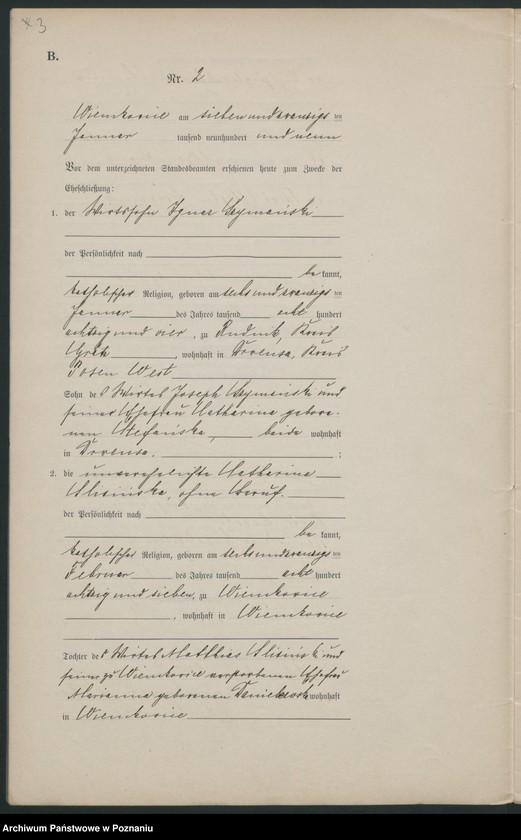 3
B.
Nr. 2
Wiemkowice am sieben und zwanzigs ten
Januar tausend neunhundert und neun
Vor dem unterzeichneten Standesbeamten erschienen heute zum Zwecke der
Eheschließung:
1. der Wirtssohn Ignaz Szymański
der Persönlichkeit nach
be kannt,
katholischer Religion, geboren am sechs und zwanzigs ten
Januar des Jahres tausend acht hundert
achtzig und vier, zu Rudnik, Kreis
Grätz, wohnhaft in Kreis
Posen West
Sohn des Wirtes Joseph Szymański und
seiner Ehefrau Katharina gebore-
nen Stefańska, beide wohnhaft
in ;
2. die unverehelichte Katharina
ohne Beruf.
der Persönlichkeit nach
be kannt,
katholischer Religion, geboren am sechs und zwanzigs ten
Februar des Jahres tausend acht hundert
achtzig und sieben, zu Wiemkowice
, wohnhaft in Wiemkowice
Tochter des Wirtes Matthias und
seiner zu Wiemkowice verstorbenen Ehefrau
Marianna geborenen wohnhaft
in Wiemkowice
Archiwum Państwowe w Poznaniu